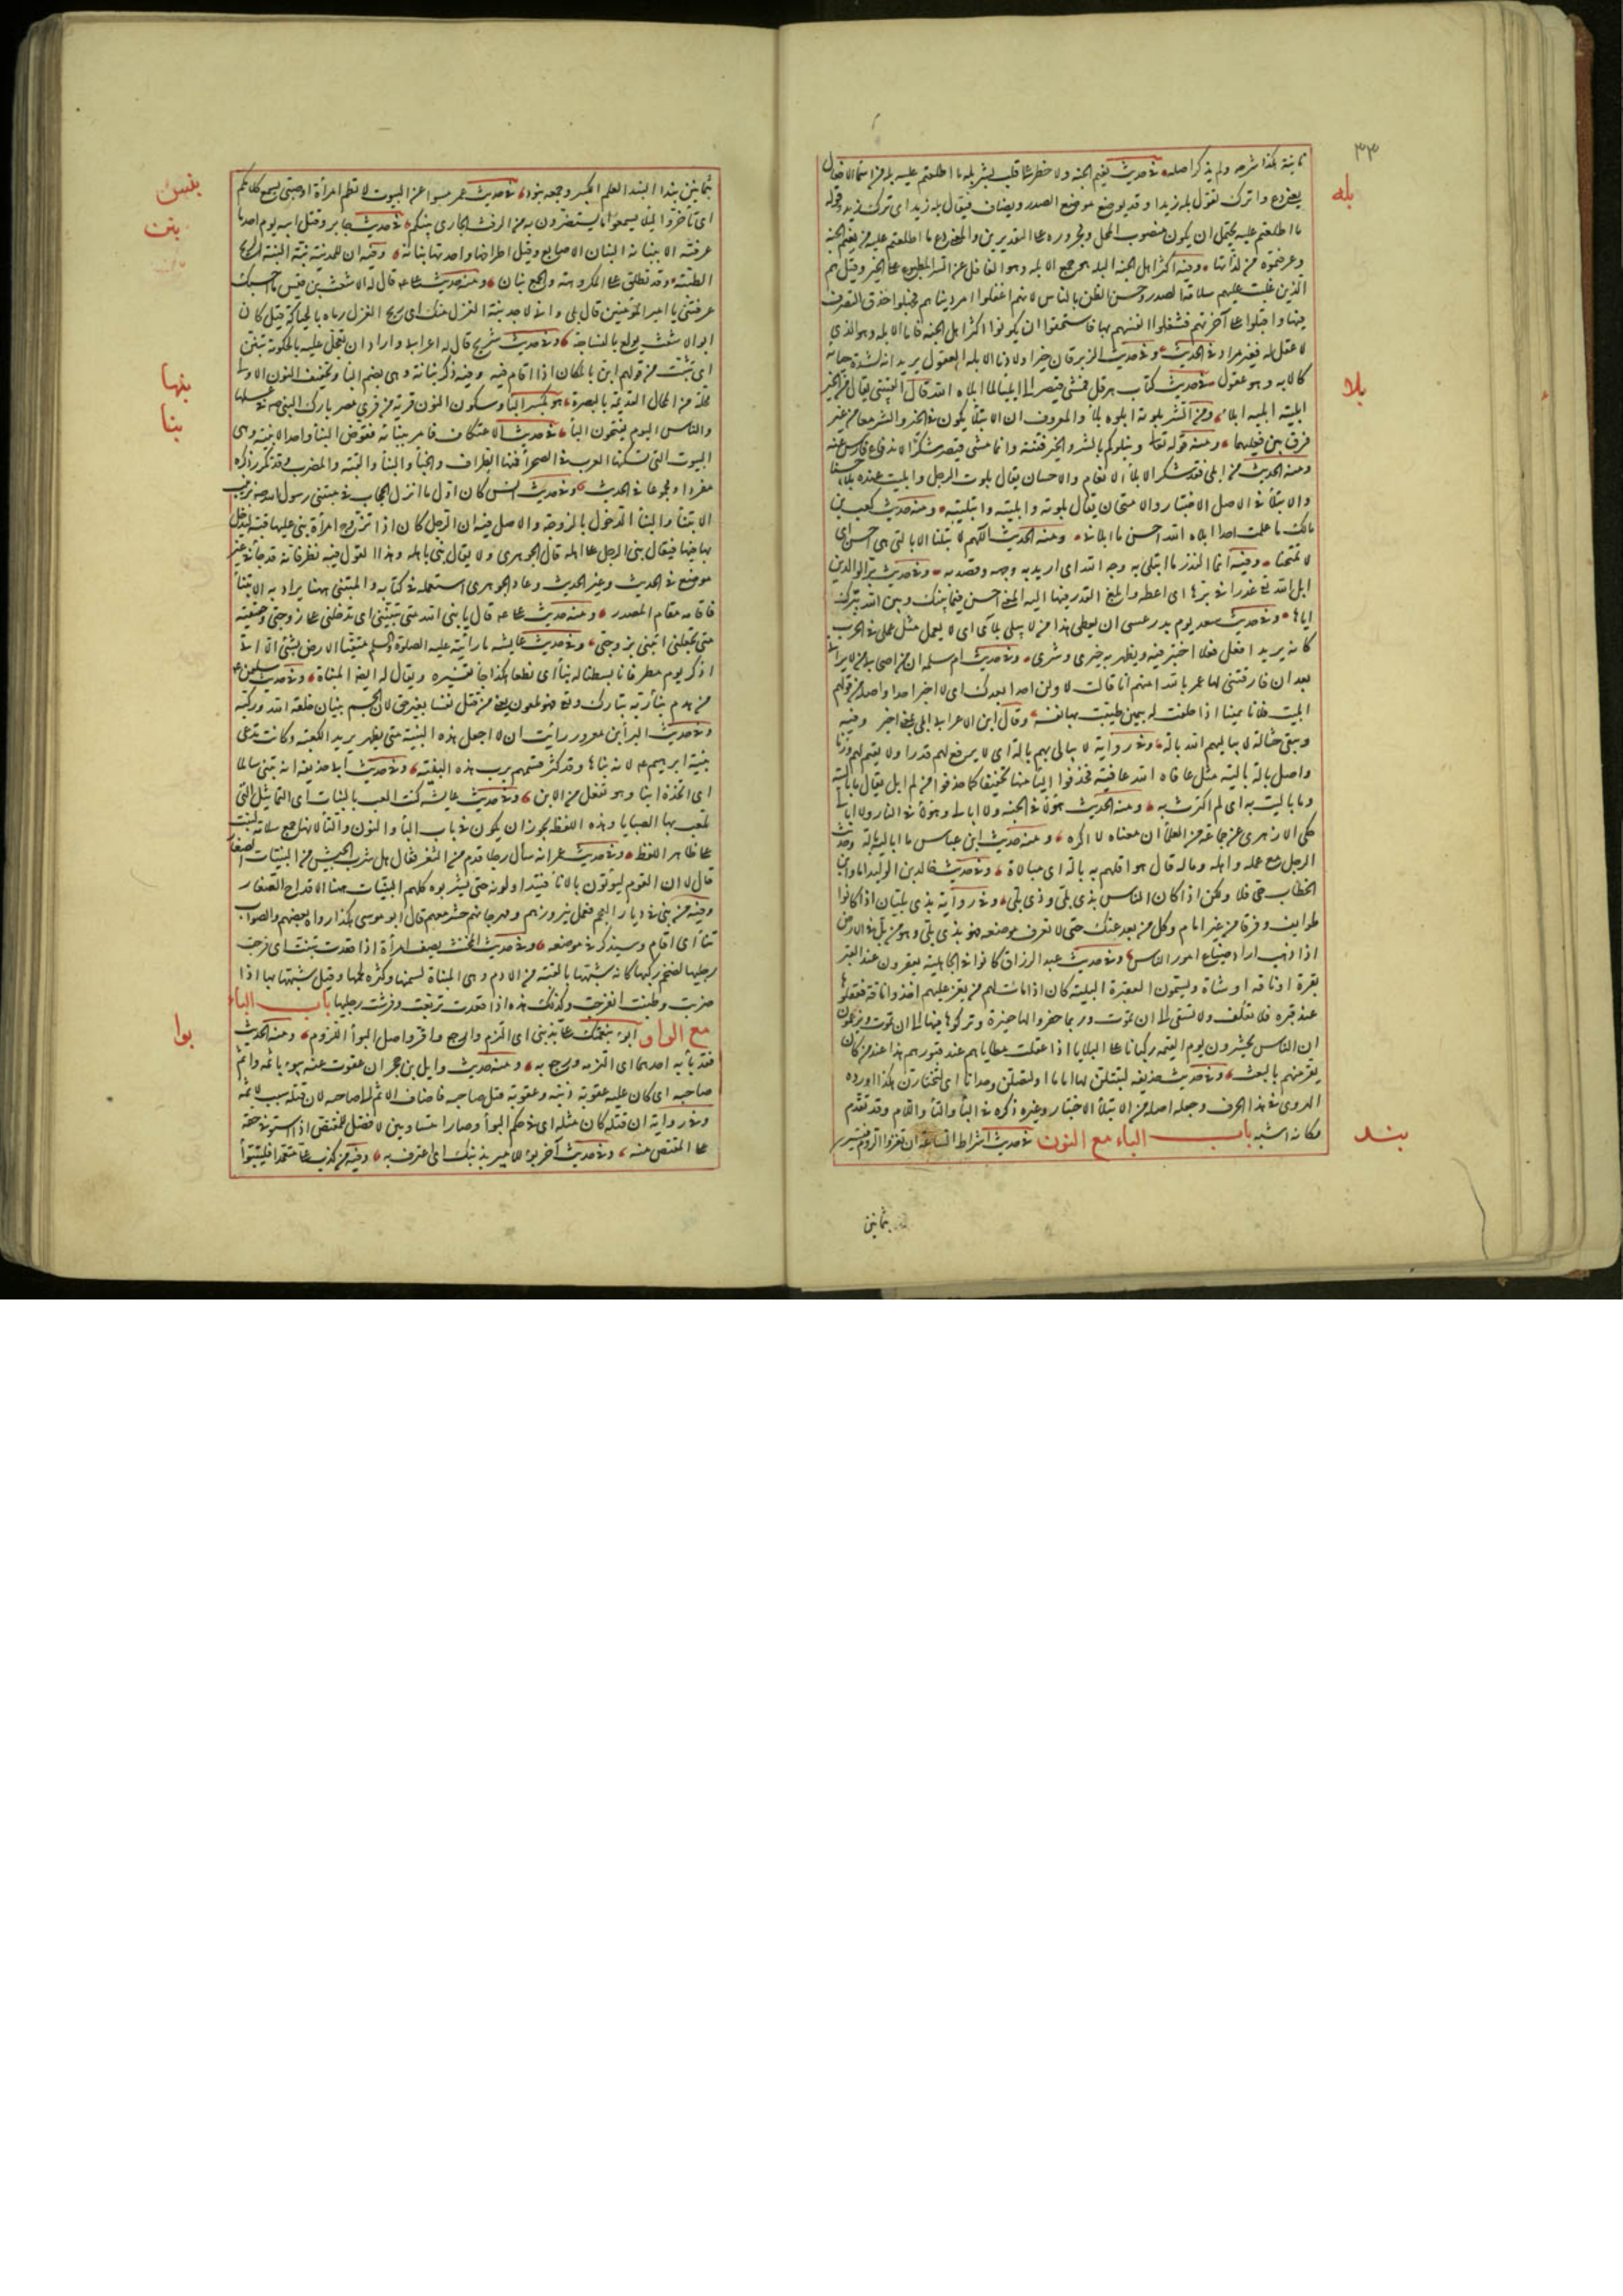 ٣٣
بله
ثانية هكذا شرحه ولم يذكر اصله في حديث نعيم الجنة ولا خطر على قلب بشر بله ما اطلعتم عليه بله من اسماء الافعال
بمعنى دع واترك تقول بله زيدا وقد يوضع موضع المصدر ويضاف فيقال بله زيد اى ترك زيد وقوله
ما اطلعتم عليه يحتمل ان يكون منصوب المحل ومجروره على التقديرين والمعنى دع ما اطلعتم عليه من نعيم الجنة
وعرفتموه من لذاتها وفيه اكثر اهل الجنة البله هو جمع الابله وهو الغافل عن الشر المطبوع على الخير وقيل هم
الذين غلبت عليهم سلامة الصدر وحسن الظن بالناس لانهم اغفلوا امر دنياهم فجهلوا حذق التصرف
فيها واقبلوا على آخرتهم فشغلوا انفسهم بها فاستحقوا ان يكونوا اكثر اهل الجنة فاما الابله وهو الذي
لا عقل له فغير مراد في الحديث وفي حديث الزبرقان خير اولادنا الابله العقول يريد انه لشدة حيائه
بلا
كالابه وهو عقول في حديث كتاب هرقل فمشى قيصر الى ايلياء لما ابلاه الله قال القتيبي يقال من الخير
ابليته ابليه ابلاء ومن الشر بلوته ابلوه بلاء والمعروف ان الابتلاء يكون في الخير والشر معا من غير
فرق بين فعليهما ومنه قوله تعالى ونبلوكم بالشر والخير فتنة وانما مشى قيصر شكرا لاندفاع فارس عنه
ومنه الحديث من ابلى فقد شكر الابلاء الانعام والاحسان يقال بلوت الرجل وابليت عنده بلاء حسنا
والابتلاء في الاصل الاختبار والامتحان يقال بلوته وابليته وابتليته ومنه حديث كعب بن
مالك ما علمت احدا ابلاه الله احسن ما ابلاني ومنه الحديث اللهم لا تبلنا الا بالتي هي احسن اى
لا تمتحنا وفيه انما النذر ما ابتلي به وجه الله اى اريد به وجهه وقصد به وفي حديث بر الوالدين
ابل الله تعالى عذرا في برها اى اعطه وابلغ العذر فيها اليه المعنى احسن فيما بينك وبين الله ببرك
اياها وفي حديث سعد يوم بدر عسى ان يعطى هذا من لا يبلي بلائي اى لا يعمل مثل عملي في الحرب
كانه يريد افعل فعلا اختبر فيه ويظهر به خيري وشري وفي حديث ام سلمة ان من اصحابي من لا يراني
بعد ان فارقني فقال لها عمر بالله امنهم انا قالت لا ولن ابلي احدا بعدك اى لا اخبر احدا واصله من قولهم
ابليت فلانا يمينا اذا حلفت له بيمين طيبت بها نفسه وقال ابن الاعرابي ابلى بمعنى اخبر وفيه
وتبقى حثالة لا يباليهم الله بالة وفي رواية لا يبالي بهم بالة اى لا يرفع لهم قدرا ولا يقيم لهم وزنا
واصل بالة بالية مثل عافاه الله عافية فحذفوا الياء منها تخفيفا كما حذفوا من لم ابل يقال ما باليته
وما باليت به اى لم اكترث به ومنه الحديث هؤلاء في الجنة ولا ابالي وهؤلاء في النار ولا ابالي
حكى الازهري عن جماعة من العلماء ان معناه لا اكره ومنه حديث ابن عباس ما اباليه بالة وحديث
الرجل مع عمله واهله وماله قال هو اقلهم به بالة اى مبالاة وفي حديث خالد بن الوليد اما وابن
الخطاب حي فلا ولكن اذا كان الناس بذي بلي وذي بلى وفي رواية بذي بليان اذا كانوا
طوائف وفرقا من غير امام وكل من بعد عنك حتى لا تعرف موضعه فهو بذي بلي وهو من بل في الارض
اذا ذهب اراد ضياع امور الناس وفي حديث عبد الرزاق كانوا في الجاهلية يعقرون عند القبر
بقرة او ناقة او شاة ويسمون العقيرة البلية كان اذا مات لهم من يعز عليهم اخذوا ناقة فعقلوها
عند قبره فلا تعلف ولا تسقى الى ان تموت وربما حفروا لها حفيرة وتركوها فيها الى ان تموت ويزعمون
ان الناس يحشرون يوم القيمة ركبانا على البلايا اذا عقلت مطاياهم عند قبورهم هذا عند من كان
يقر منهم بالبعث وفي حديث حذيفة لتبتلن لها اماما او لتصلن وحدانا اى لتختارن هكذا اورده
الهروي في هذا الحرف وجعله اصله من الابتلاء الاختبار وغيره ذكره في الباء والتاء واللام وقد تقدم
بند
مكانه اشبه باب الباء مع النون في حديث اشراط الساعة ان تغزوا الروم فتسير
بثمانين
بثمانين بندا البند العلم الكبير وجمعه بنود في حديث عمر بنسوا عن البيوت لا تطم امرأة او صبي يسمع كلامكم
بنس
اى تأخروا لئلا يسمعوا ما يستضرون به من الرفث الجاري بينكم في حديث جابر وقتل ابيه يوم احد ما
بنن
عرفته الا ببنانه البنان الاصابع وقيل اطرافها واحدتها بنانة وفيه ان للمدينة بنة البنة الريح
الطيبة وقد تطلق على المكروهة والجمع بنان ومنه حديث علي قال له الاشعث بن قيس ما احسبك
عرفتني يا امير المؤمنين قال بلى واني لاجد بنة الغزل منك اى ريح الغزل رماه بالحياكة قيل كان
ابو الاشعث يولع بالنساجة وفي حديث شريح قال له اعرابي واراد ان يعجل عليه بالحكومة تبنن
اى تثبت من قولهم ابن بالمكان اذا اقام فيه وفيه ذكر بنانة وهي بضم الباء وتخفيف النون الاولى
بنها
محلة من المحال القديمة بالبصرة هو بكسر الباء وسكون النون قرية من قرى مصر بارك النبي صلعم في عسلها
بنا
والناس اليوم يفتحون الباء في حديث الاعتكاف فامر ببنائه فقوض البناء واحد الابنية وهي
البيوت التي تسكنها العرب في الصحراء فمنها الطراف والخباء والبناء والقبة والمضرب وقد تكرر ذكره
مفردا ومجموعا في الحديث وفي حديث انس كان اول ما انزل الحجاب في مبتنى رسول الله بزينب
الابتناء والبناء الدخول بالزوجة والاصل فيه ان الرجل كان اذا تزوج امرأة بنى عليها قبة ليدخل
بها فيها فيقال بنى الرجل على اهله قال الجوهري ولا يقال بنى باهله وهذا القول فيه نظر فانه قد جاء في غير
موضع في الحديث وغير الحديث وعاد الجوهري استعمله في كتابه والمبتنى ههنا يراد به الابتناء
فاقامه مقام المصدر ومنه حديث علي قال يا نبي الله متى تبنيني اى تدخلني على زوجتي وحقيقته
متى تجعلني ابتني بزوجتي وفي حديث عايشة ما رأيته عليه الصلوة والسلم متقيا الارض بشئ الا اني
اذكر يوم مطر فانا بسطنا له بناء اى نطعا هكذا جاء تفسيره ويقال له ايضا المبناة وفي حديث سليمن عم
من هدم بناء ربه تبارك وتعالى فهو ملعون يعنى من قتل نفسا بغير حق لان الجسم بنيان خلقه الله وركبه
وفي حديث البراء بن معرور رأيت ان لا اجعل هذه البنية مني بظهر يريد الكعبة وكانت تدعى
بنية ابرهيم عم لانه بناها وقد كثر قسمهم برب هذه البنية وفي حديث ابي حذيفة انه تبنى سالما
اى اتخذه ابنا وهو تفعل من الابن وفي حديث عايشة كنت العب بالبنات اى التماثيل التي
تلعب بها الصبايا وهذه اللفظة يجوز ان يكون في باب الباء والنون والتاء لانها جمع سلامة لبنت
على ظاهر اللفظ وفي حديث عمر انه سأل رجلا قدم من الثغر فقال هل شرب الجيش من البنيات الصغار
قال لا ان القوم ليؤتون بالاناء فيتداولونه حتى يشربوه كلهم البنيات ههنا الاقداح الصغار
وفيه من بنى في ديار العجم فعمل نيروزهم ومهرجانهم حشر معهم قال ابو موسى هكذا رواه بعضهم والصواب
تنأ اى اقام وسيذكر في موضعه وفي حديث المخنث يصف امرأة اذا قعدت تبنت اى فرجت
رجليها لضخم ركبها كانه شبهها بالقبة من الادم وهي المبناة لسمنها وكثرة لحمها وقيل شبهها بها اذا
ضربت وطنبت انفرجت وكذلك هذه اذا قعدت تربعت وفرشت رجليها باب الباء
بوا
مع الواو ابوء بنعمتك علي وابوء بذنبي اى التزم وارجع واقر واصل البواء اللزوم ومنه الحديث
فقد باء به احدهما اى التزمه ورجع به ومنه حديث وايل بن حجر ان عفوت عنه يبوء باثمه واثم
صاحبه اى كان عليه عقوبة ذنبه وعقوبة قتل صاحبه فاضاف الاثم الى صاحبه لان قتله سبب لاثمه
وفي رواية ان قتله كان مثله اى في حكم البواء وصارا متساويين لا فضل للمقتص اذا استوفى حقه
على المقتص منه وفي حديث آخر بؤ للامير بذنبك اى اعترف به وفيه من كذب علي متعمدا فليتبوأ